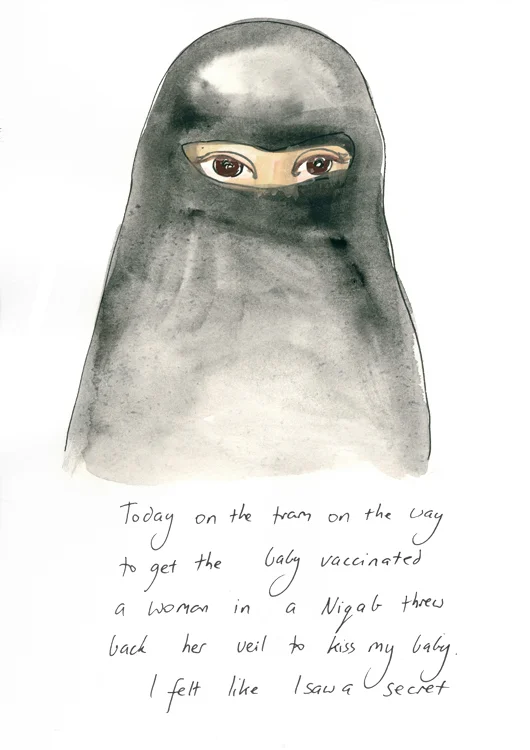 Today on the tram on the way
to get the baby vaccinated
a woman in a Niqab threw
back her veil to kiss my baby.
I felt like I saw a secret